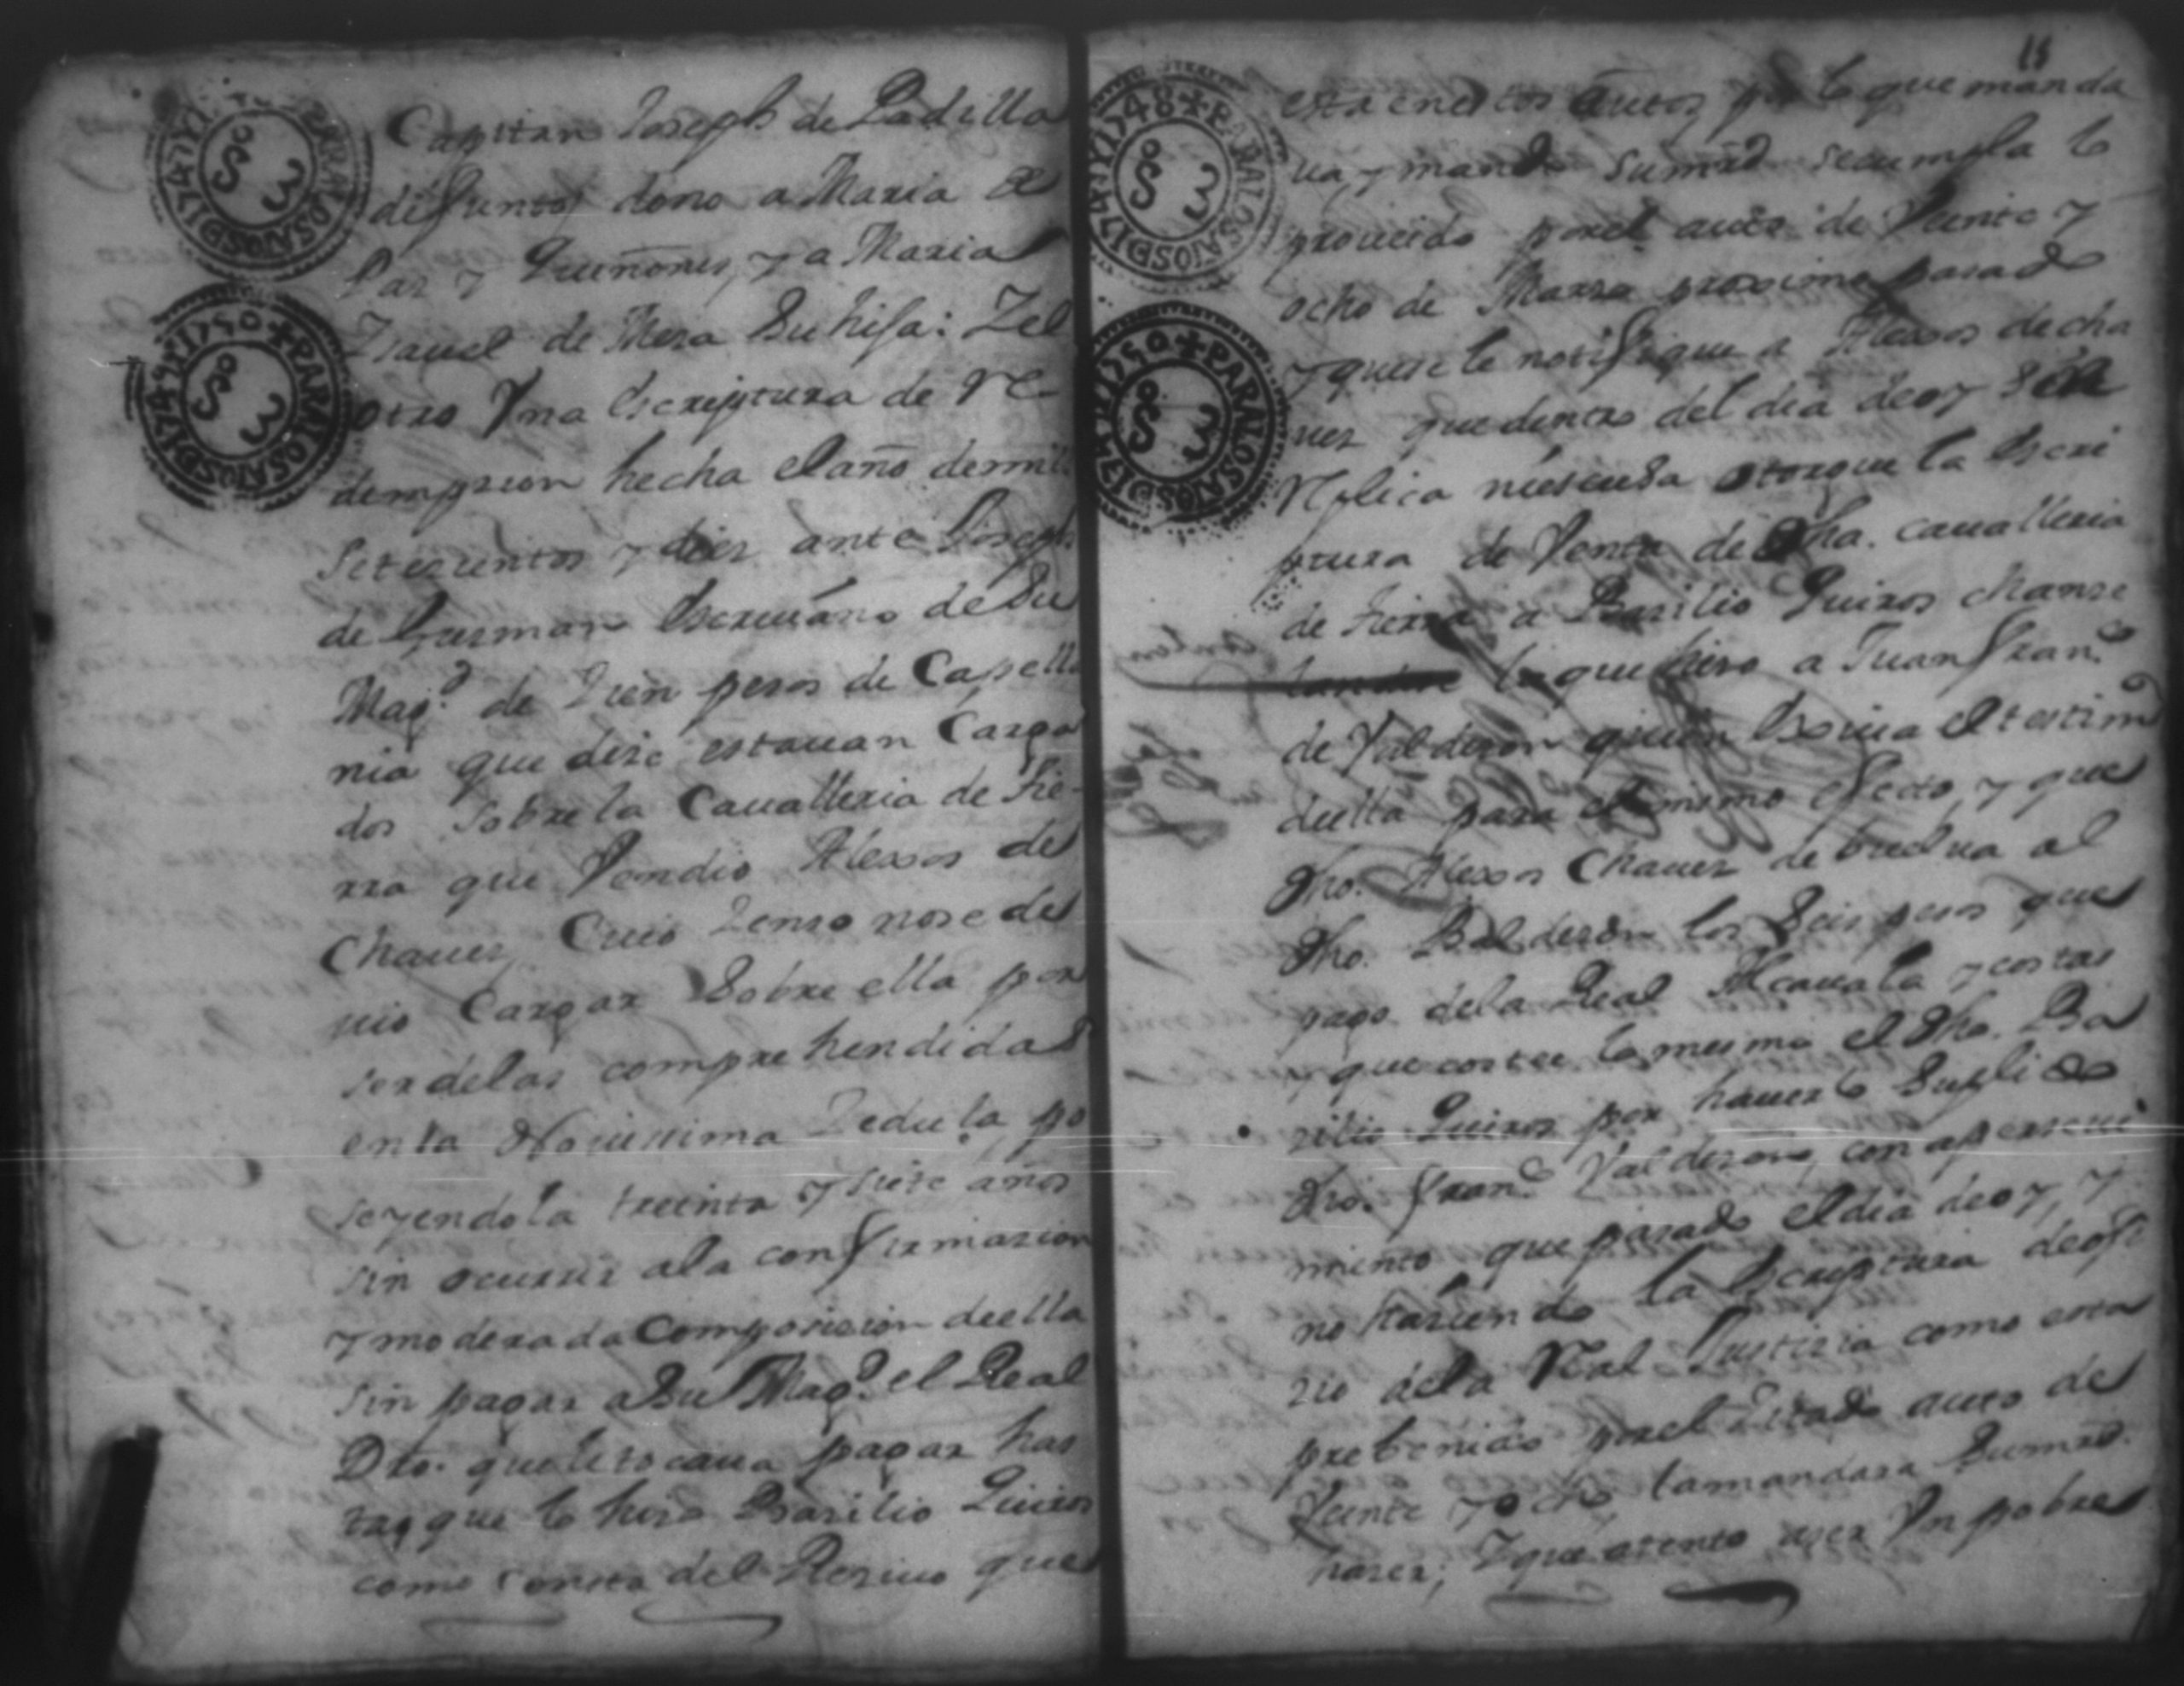 Capitan Joseph de Padilla
difunto dono a Maria de
Paz y Quiñones, y a Maria
Ysavel de Mesa Su hija: Zel
otro Vna Escriptura de re-
dempzion hecha el año de mil
Setezientos y diez ante Joseph
de Guzman Escriuano de Su
Magd. de Zien pesos de Capella
nia que dize estauan Carga
dos sobre la Caualleria de tie-
rra que Vendio Alexos de
Chauez, Cuio Zenso no se de
uio Cargar Sobre ella por
ser delas comprehendidas
en la Nouissima Zedula, po
seyendola treinta y siete años
sin ocurrir ala confirmazion
y moderada Composizion de ella
sin pagar a Su Magd. el Real
Dro. que le tocaua pagar has
ta que lo hizo Bazilio Quiros
como consta del Reziuo que
18
esta en estos autos, por lo que manda
ua, y mando Sumrd. se cumpla lo
proueido por el auto de Veinte y
ocho de Marzo proximo pasado
y que se le notifique a Alexos de cha
uez que dentro del dia de oy Sin
replica ni escusa otorgue la Escri
ptura de Venta de dha. caualleria
de tierra a Bazilio Quiros
la que hizo a Juan Franco.
de Valderon quien Exsiua el testimo
de ella para el mismo efecto, y que
dho. Alexos Chauez debuelua al
dho. Balderon los Seis pesos que
pago de la Real Alcauala y costas
y que costee lo mesmo el dho. Ba
zilio Quiros por hauerlo Suplido
dho. Franco. Valderon, con aperseui
miento que pasado el dia de oy, y
no haziendo la Escriptura de ofi
zio de la Real Justizia como esta
prebenido por el Zitado auto de
Veinte y ocho la mandara Sumrd.
hazer; Y que atento a ser Vn pobre